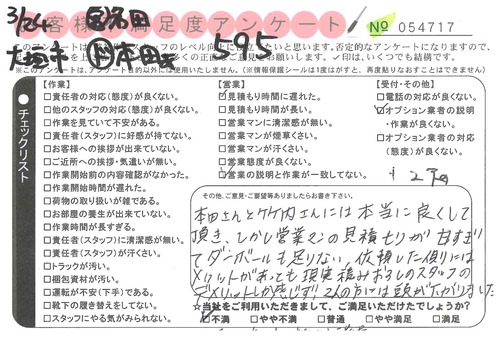 3/24
お客様満足度アンケート
№ 054717
大垣市
595
このアンケートは
スタッフのレベル向上に役立てたいと思います。否定的なアンケートになりますので、
✓印は、いくつでも結構です。
※このアンケートは、アンケート目的以外には使用いたしません。(※情報保護シールは1度はがすと、再度貼りなおすことはできません)
チェックリスト
【作業】
□責任者の対応(態度)が良くない。
□他のスタッフの対応(態度)が良くない。
□作業を見ていて不安がある。
□責任者(スタッフ)に好感が持てない。
□お客様への挨拶が出来ていない。
□ご近所への挨拶・気遣いが無い。
□作業開始前の内容確認がなかった。
□作業開始時間が遅れた。
□荷物の取り扱いが雑である。
□お部屋の養生が出来ていない。
□作業時間が長すぎる。
□責任者(スタッフ)に清潔感が無い。
□責任者(スタッフ)が汗くさい。
□トラックが汚い。
□梱包資材が汚い。
□運転が不安(下手)である。
□靴下の履き替えをしてない。
□スタッフにやる気がみられない。
【営業】
☑見積もり時間に遅れた。
□見積もり時間が長い。
□営業マンに清潔感が無い。
□営業マンが煙草くさい。
□営業マンが汗くさい。
□営業態度が良くない。
□営業の説明と作業が一致してない。
【受付・その他】
□電話の対応が良くない。
☑オプション業者の説明・作業が良くない。
□オプション業者の対応(態度)が良くない。
その他、ご意見・ご要望等ありましたらお書き下さい。
本田さんと竹内さんには本当に良くして
頂き、しかし営業マンの見積もりが甘すぎ
てダンボールも足りない、依頼した側には
メリットがあっても現実積みおろしのスタッフの
デメリットしか感じず、2人の方には頭が下がりました
☆当社をご利用いただきまして、ご満足いただけたでしょうか?
☑不満 □やや不満 □普通 □やや満足 □満足